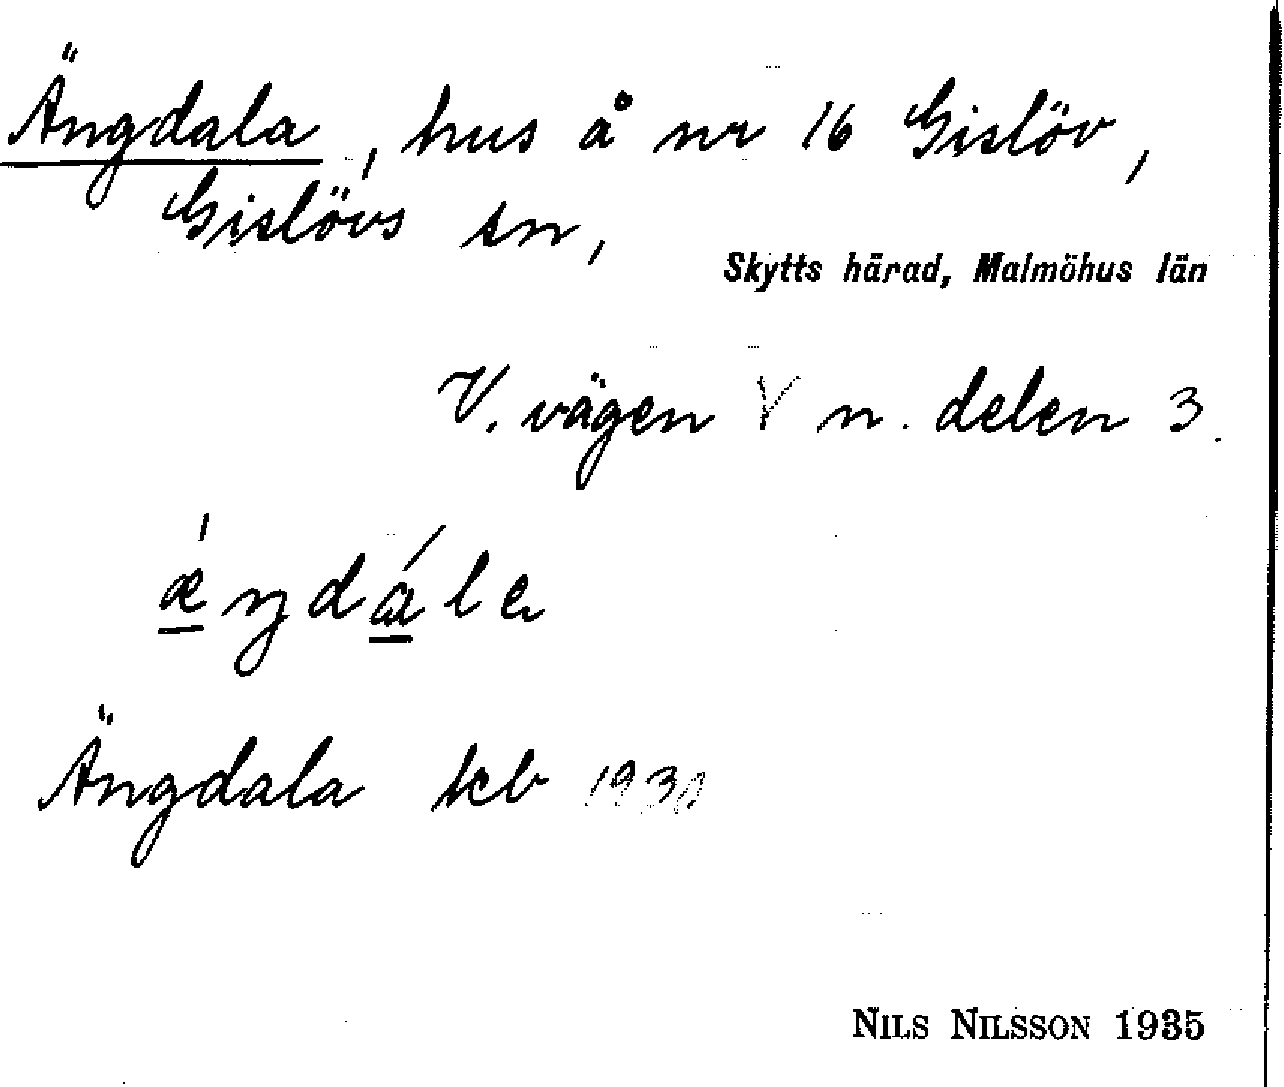 Ängdala, hus å nr 16 Gislöv,
Gislövs sn,
Skytts härad, Malmöhus län
V. vägen V n. delen 3.
ǽŋdála
Ängdala kb 1930
NILS NILSSON 1935